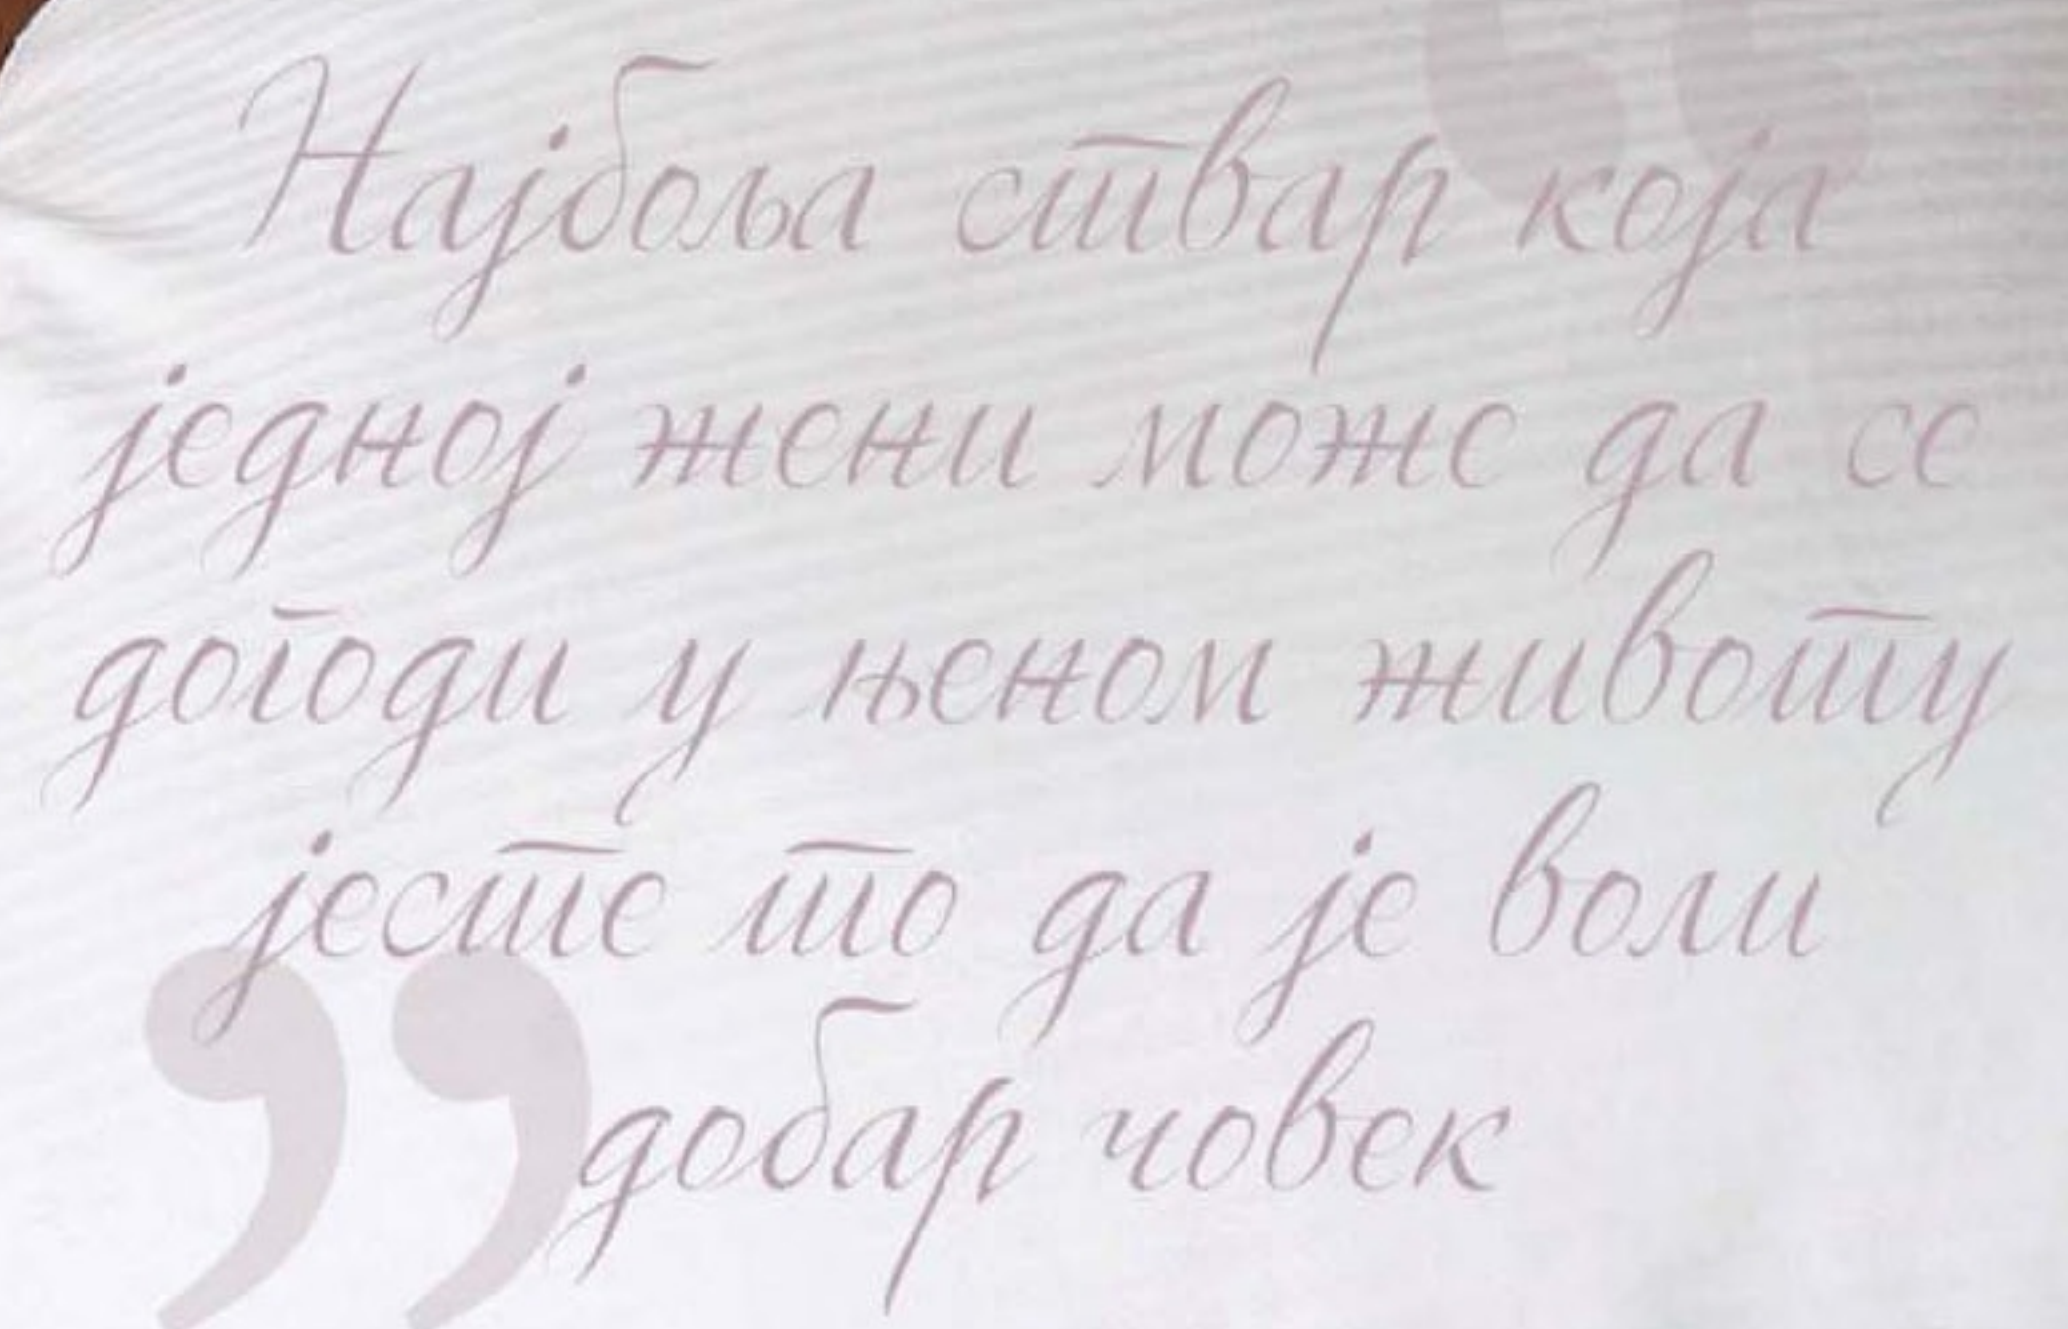 Најбоља ствар која
једној жени може да се
догоди у њеном животу
јесте то да је воли
добар човек